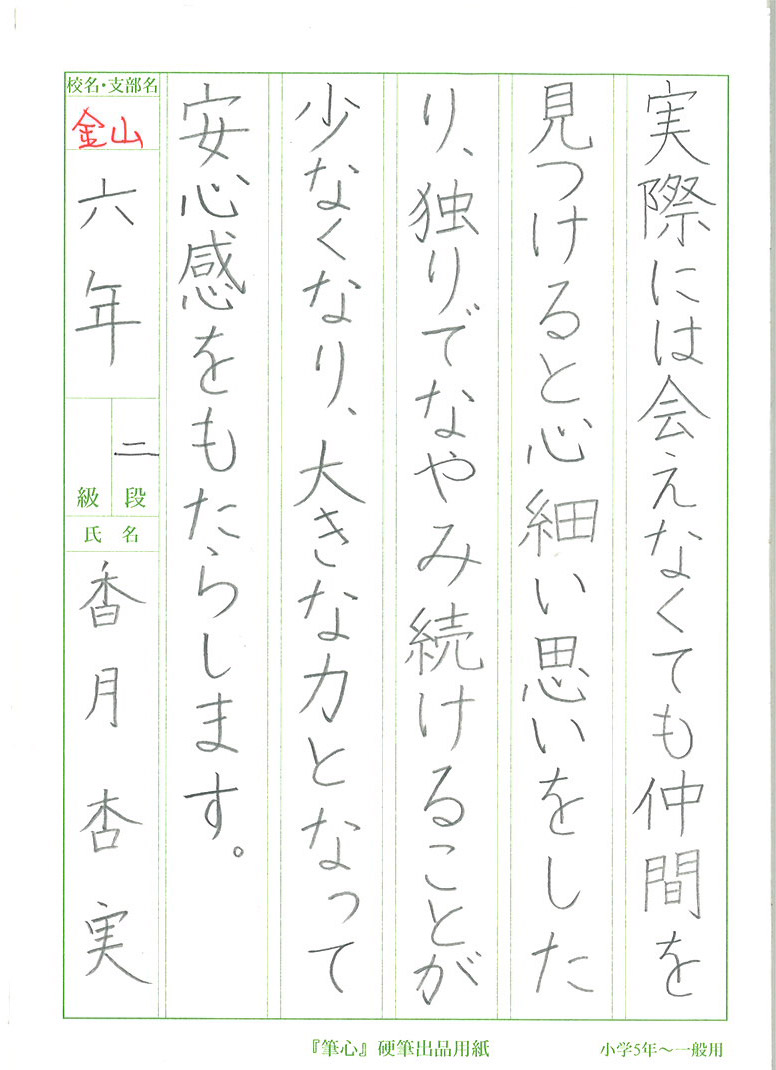 実際には会えなくても仲間を
見つけると心細い思いをした
り、独りでなやみ続けることが
少なくなり、大きな力となって
安心感をもたらします。
校名・支部名
金山
六年
二段
級
氏名
香月杏実
『筆心』硬筆出品用紙
小学5年〜一般用